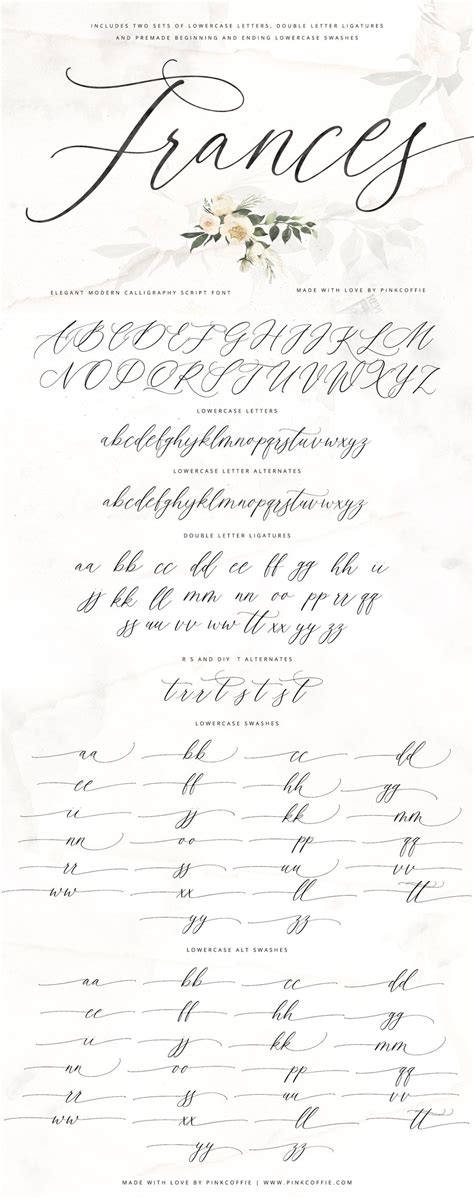 INCLUDES TWO SETS OF LOWERCASE LETTERS, DOUBLE LETTER LIGATURES
AND PREMADE BEGINNING AND ENDING LOWERCASE SWASHES
Frances
ELEGANT MODERN CALLIGRAPHY SCRIPT FONT
MADE WITH LOVE BY PINKCOFFIE
ABCDEFGHIJKLM
NOPQRSTUVWXYZ
LOWERCASE LETTERS
abcdefghijklmnopqrstuvwxyz
LOWERCASE LETTER ALTERNATES
abcdefghijklmnopqrstuvwxyz
DOUBLE LETTER LIGATURES
aa bb cc dd ee ff gg hh ii
jj kk ll mm nn oo pp rr qq
ss uu vv ww tt xx yy zz
R S AND DIY T ALTERNATES
t r r t s t s t
LOWERCASE SWASHES
aa bb cc dd
ee ff hh gg
ii jj kk mm
nn oo pp qq
rr ss uu vv
ww xx ll tt
yy zz
LOWERCASE ALT SWASHES
aa bb cc dd
ee ff hh gg
ii jj kk mm
nn oo pp qq
rr ss uu vv
ww xx ll tt
yy zz
MADE WITH LOVE BY PINKCOFFIE | WWW.PINKCOFFIE.COM